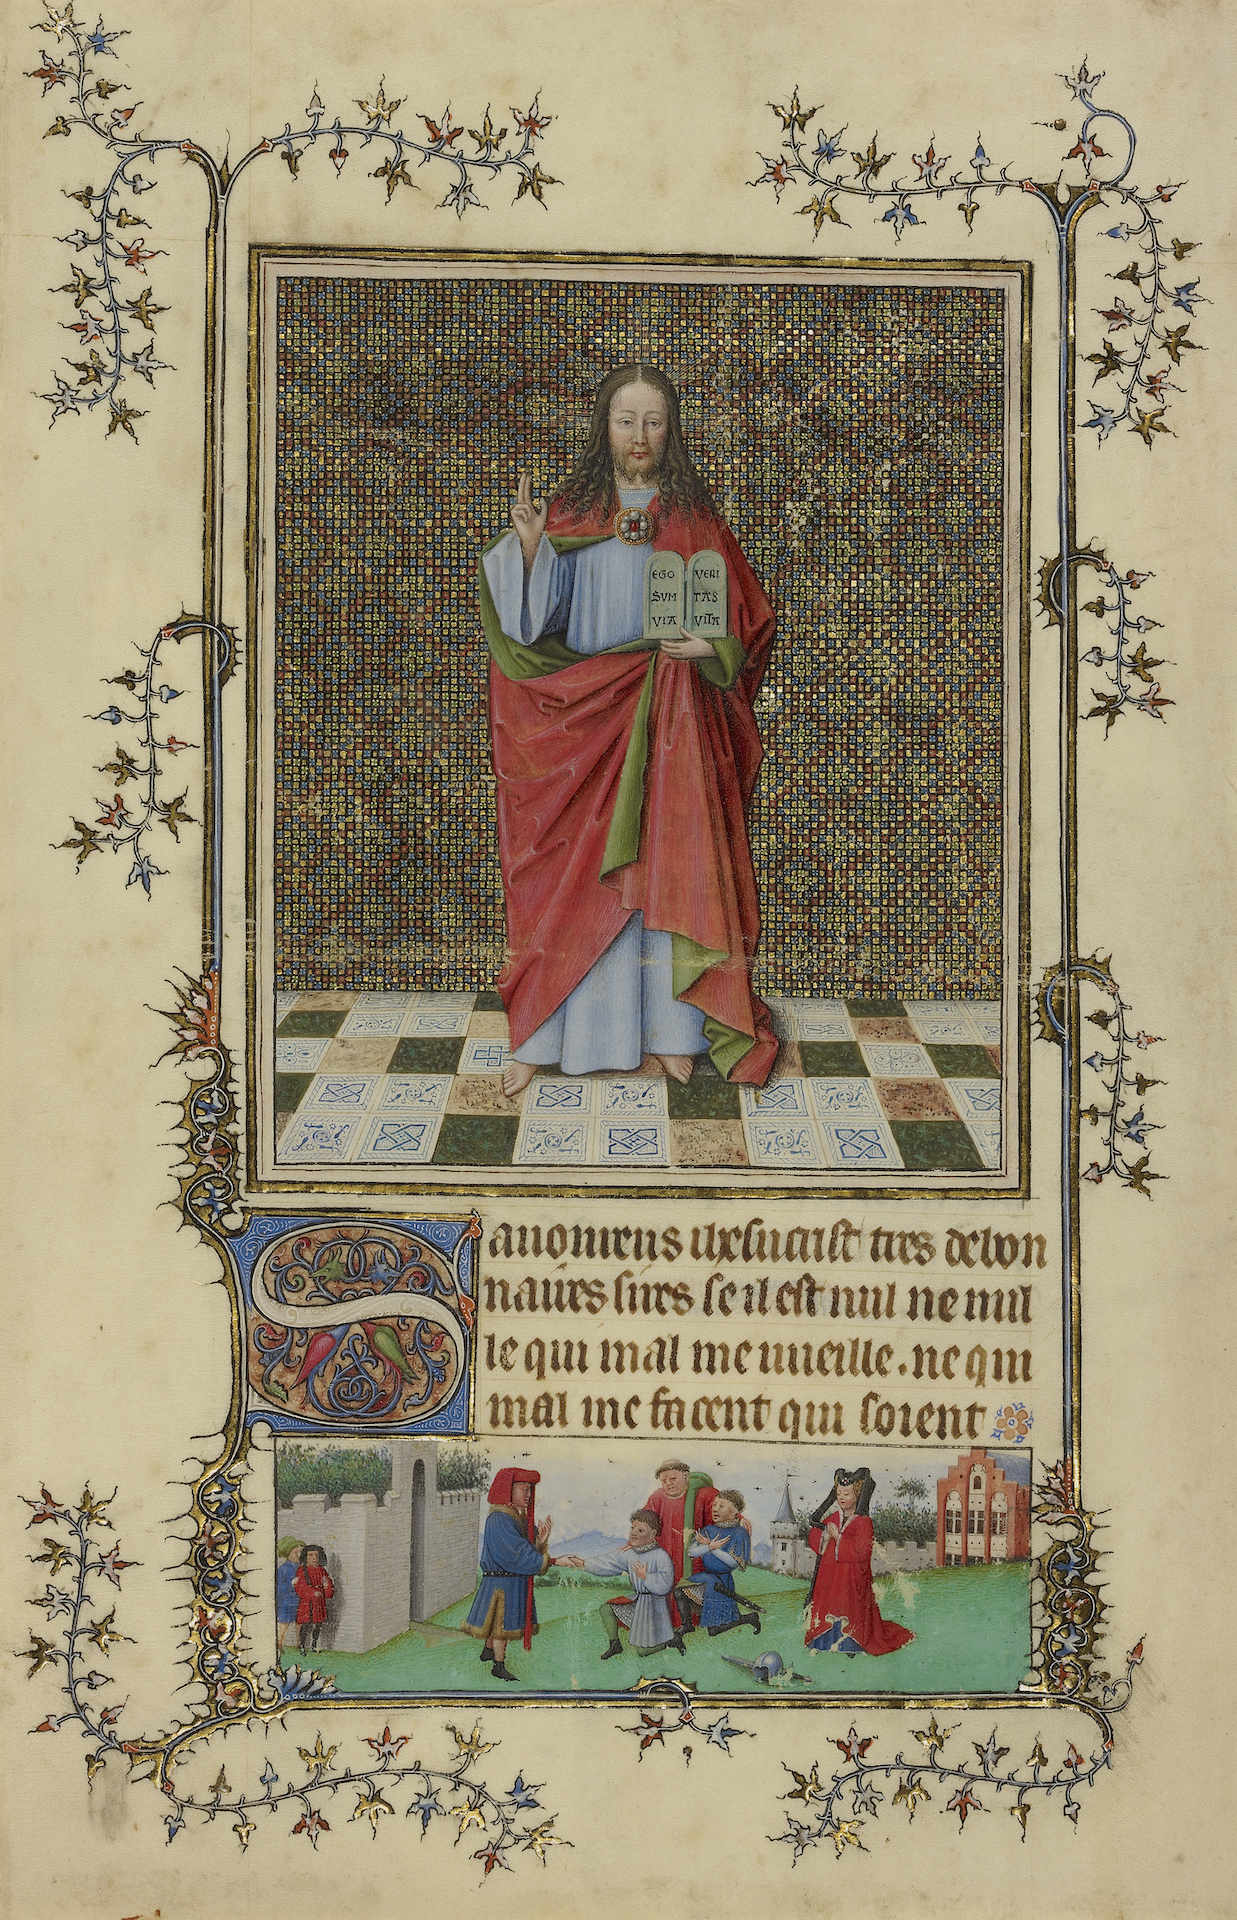 EGO VERI
SVM TAS
VIA VITA
Sauoureus ihesucrist tres debon
naires sires se il est nul ne nul
le qui mal me uueille. ne qui
mal me facent qui soient